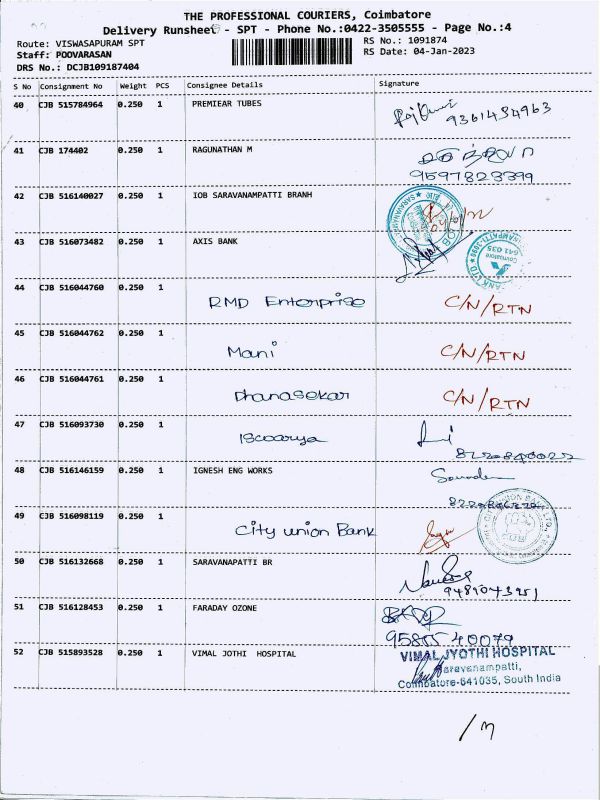 THE PROFESSIONAL COURIERS, Coimbatore
Delivery Runsheet - SPT - Phone No.:0422-3505555 - Page No.:4
Route: VISWASAPURAM SPT
RS No.: 1091874
Staff: POOVARASAN
RS Date: 04-Jan-2023
DRS No.: DCJB109187404
S No Consignment No Weight PCS Consignee Details Signature
40 CJB 515784964 0.250 1 PREMIEAR TUBES 9361434963
41 CJB 174402 0.250 1 RAGUNATHAN M
9597823399
42 CJB 516140027 0.250 1 IOB SARAVANAMPATTI BRANH
43 CJB 516073482 0.250 1 AXIS BANK
44 CJB 516044760 0.250 1 RMD Enterprise C/N/RTN
45 CJB 516044762 0.250 1 Mani C/N/RTN
46 CJB 516044761 0.250 1 Dhanasekar C/N/RTN
47 CJB 516093730 0.250 1 Iscoarya
8220840022
48 CJB 516146159 0.250 1 IGNESH ENG WORKS
49 CJB 516098119 0.250 1 City union Bank
50 CJB 516132668 0.250 1 SARAVANAPATTI BR
51 CJB 516128453 0.250 1 FARADAY OZONE
9585540079
52 CJB 515893528 0.250 1 VIMAL JOTHI HOSPITAL
VIMAL JYOTHI HOSPITAL
Saravanampatti,
Coimbatore-641035, South India